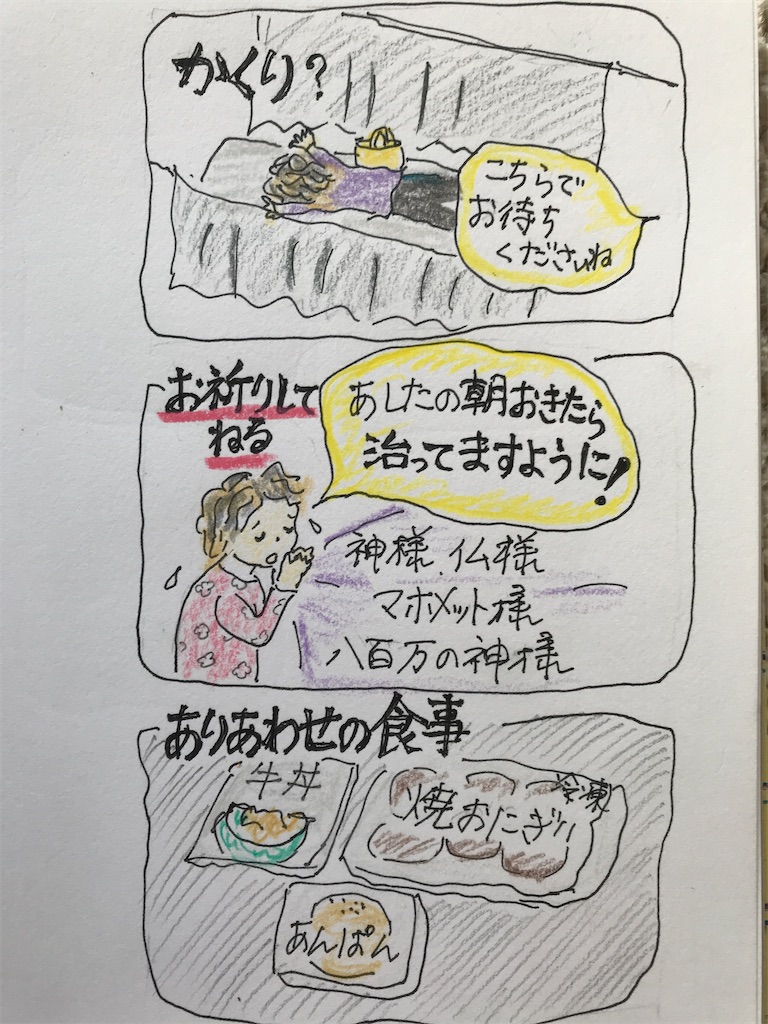 かくり?
こちらで
お待ち
くださいね
お祈りして
ねる
あしたの朝おきたら
治ってますように!
神様、仏様
マホメット様
八百万の神様
ありあわせの食事
牛丼
冷凍
焼おにぎり
あんぱん